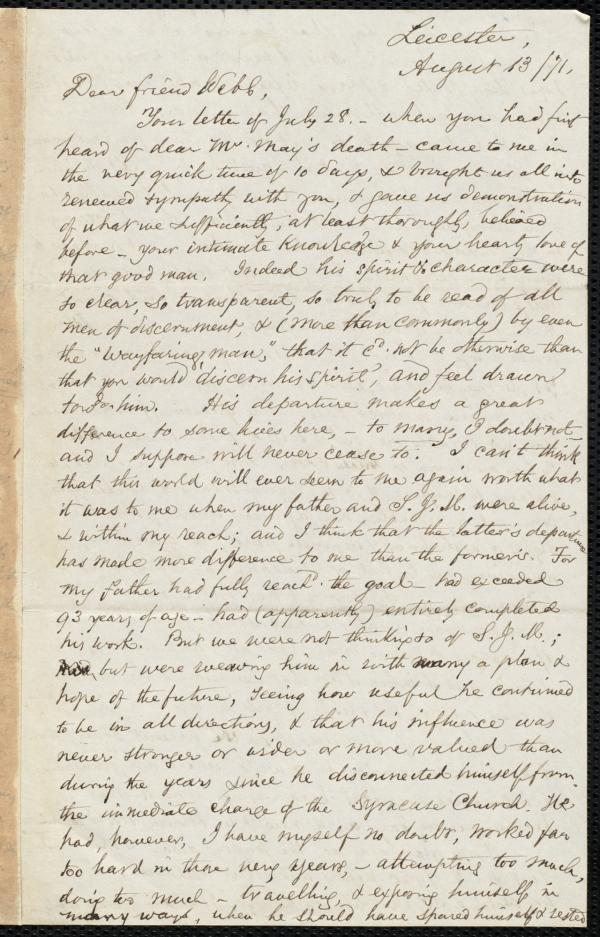 Leicester,
August 13/71.
Dear friend Webb,
Your letter of July 28. – when you had first
heard of dear Mr. May's death – came to me in
the very quick time of 10 days, & brought us all into
renewed sympathy with you, & gave us demonstration
of what we sufficiently, at least thoroughly, believed
before – your intimate knowledge & your hearty love of
that good man. Indeed his spirit & character were
so clear, so transparent, so truly to be read of all
men of discernment, & (more than commonly) by even
the "wayfaring man," that it cd. not be otherwise than
that you would 'discern his spirit', and feel drawn
to him. His departure makes a great
difference to some lives here, – to many, I doubt not –
and I suppose will never cease to. I can't think
that this world will ever seem to me again worth what
it was to me when my father and S. J. M. were alive,
& within my reach; and I think that the latter's departure
has made more difference to me than the former's. For
my father had fully reach'd the goal – had exceeded
93 years of age – had (apparently) entirely completed
his work. But we were not thinking so of S. J. M.;
but were weaving him in with many a plan &
hope of the future, seeing how useful he continued
to be in all directions, & that his influence was
never stronger or wider or more valued than
during the years since he disconnected himself from
the immediate charge of the Syracuse Church. He
had, however, I have myself no doubt, worked far
too hard in those very years, – attempting too much,
doing too much – travelling, & exposing himself in
many ways, when he should have spared himself & rested